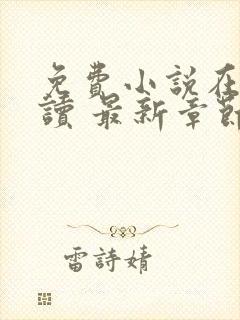 免費小說在
讀 最新章節
雷詩婧